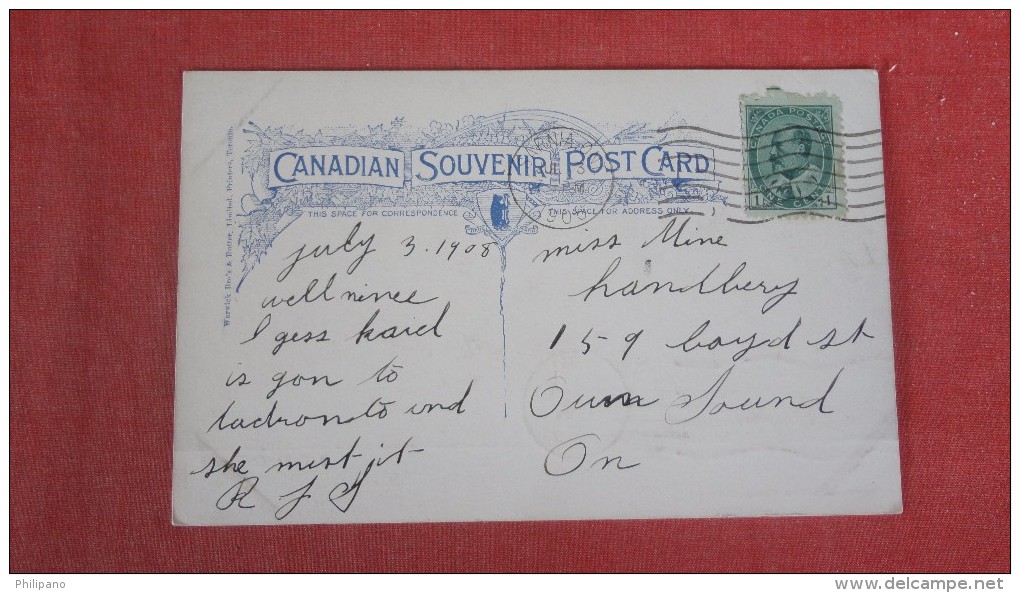 CANADIAN SOUVENIR POST CARD
THIS SPACE FOR CORRESPONDENCE
THIS SPACE FOR ADDRESS ONLY
Warwick Bro's & Rutter, Limited, Printers, Toronto.
CANADA POSTAGE
1 ONE CENT 1
RNIA
3
PM
1908
july 3. 1908
well ninee
I gess kaid
is gon to
and
she must jit
R J S
miss Mine
handbery
159 boyd st
Sound
On
Philipano
www.delcampe.net